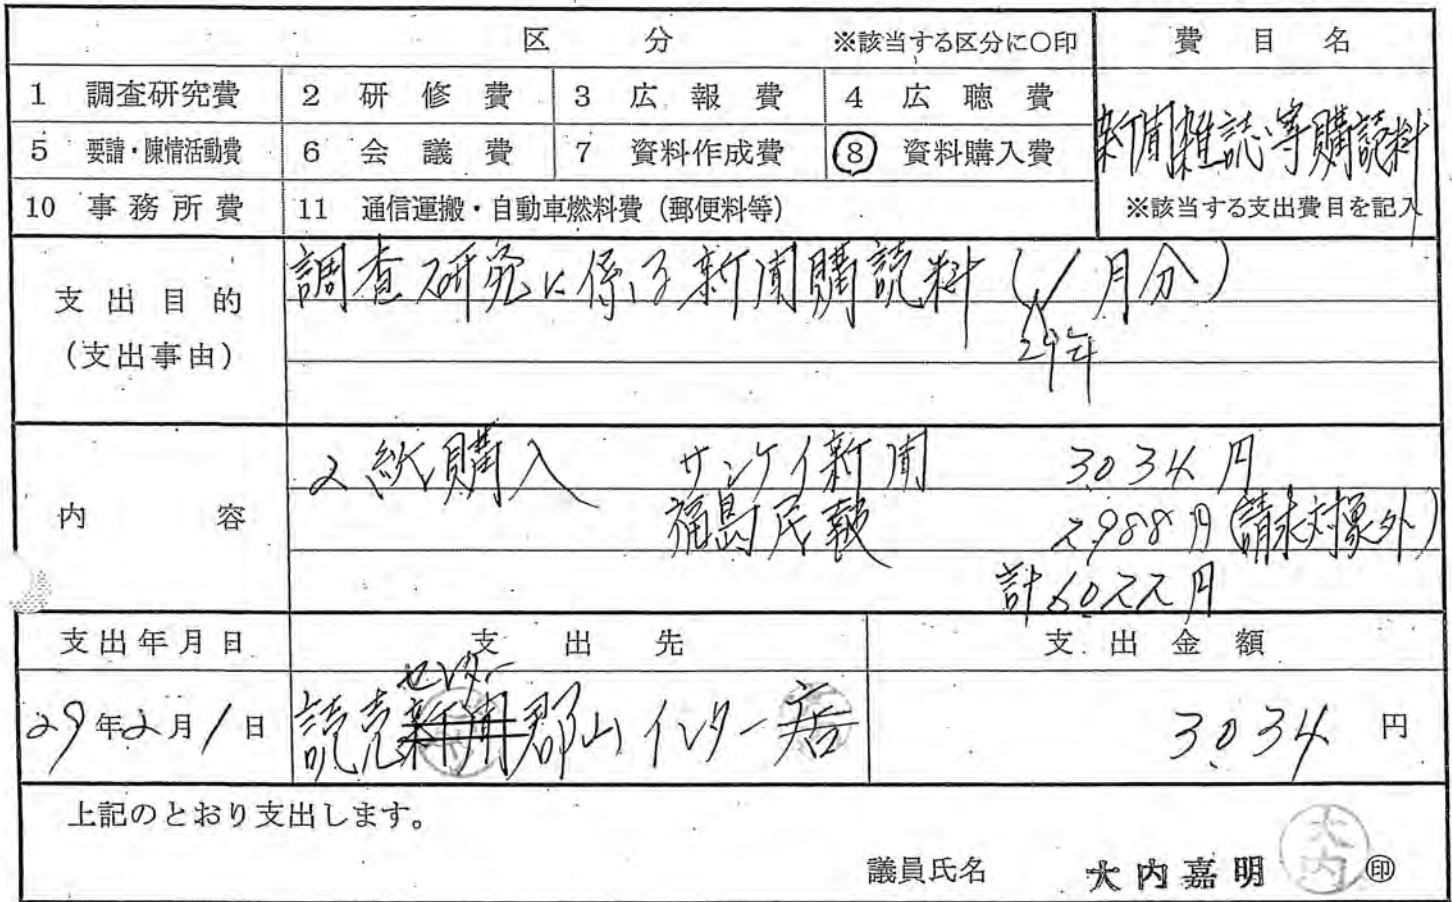 区 分 ※該当する区分に○印 費 目 名
1 調査研究費 2 研 修 費 3 広 報 費 4 広 聴 費
新聞雑誌等購読料
5 要請・陳情活動費 6 会 議 費 7 資料作成費 ⑧ 資料購入費
10 事 務 所 費 11 通信運搬・自動車燃料費（郵便料等） ※該当する支出費目を記入
支 出 目 的
（支出事由）
調査研究に係る新聞購読料（1月分）
29年
内 容
2紙購入 サンケイ新聞 3034円
福島民報 2988円（請求対象外）
計6022円
支出年月日 支 出 先 支 出 金 額
センター
29年2月1日 読売新聞郡山インター店 3034 円
上記のとおり支出します。
議員氏名 大内嘉明 ㊞
大内